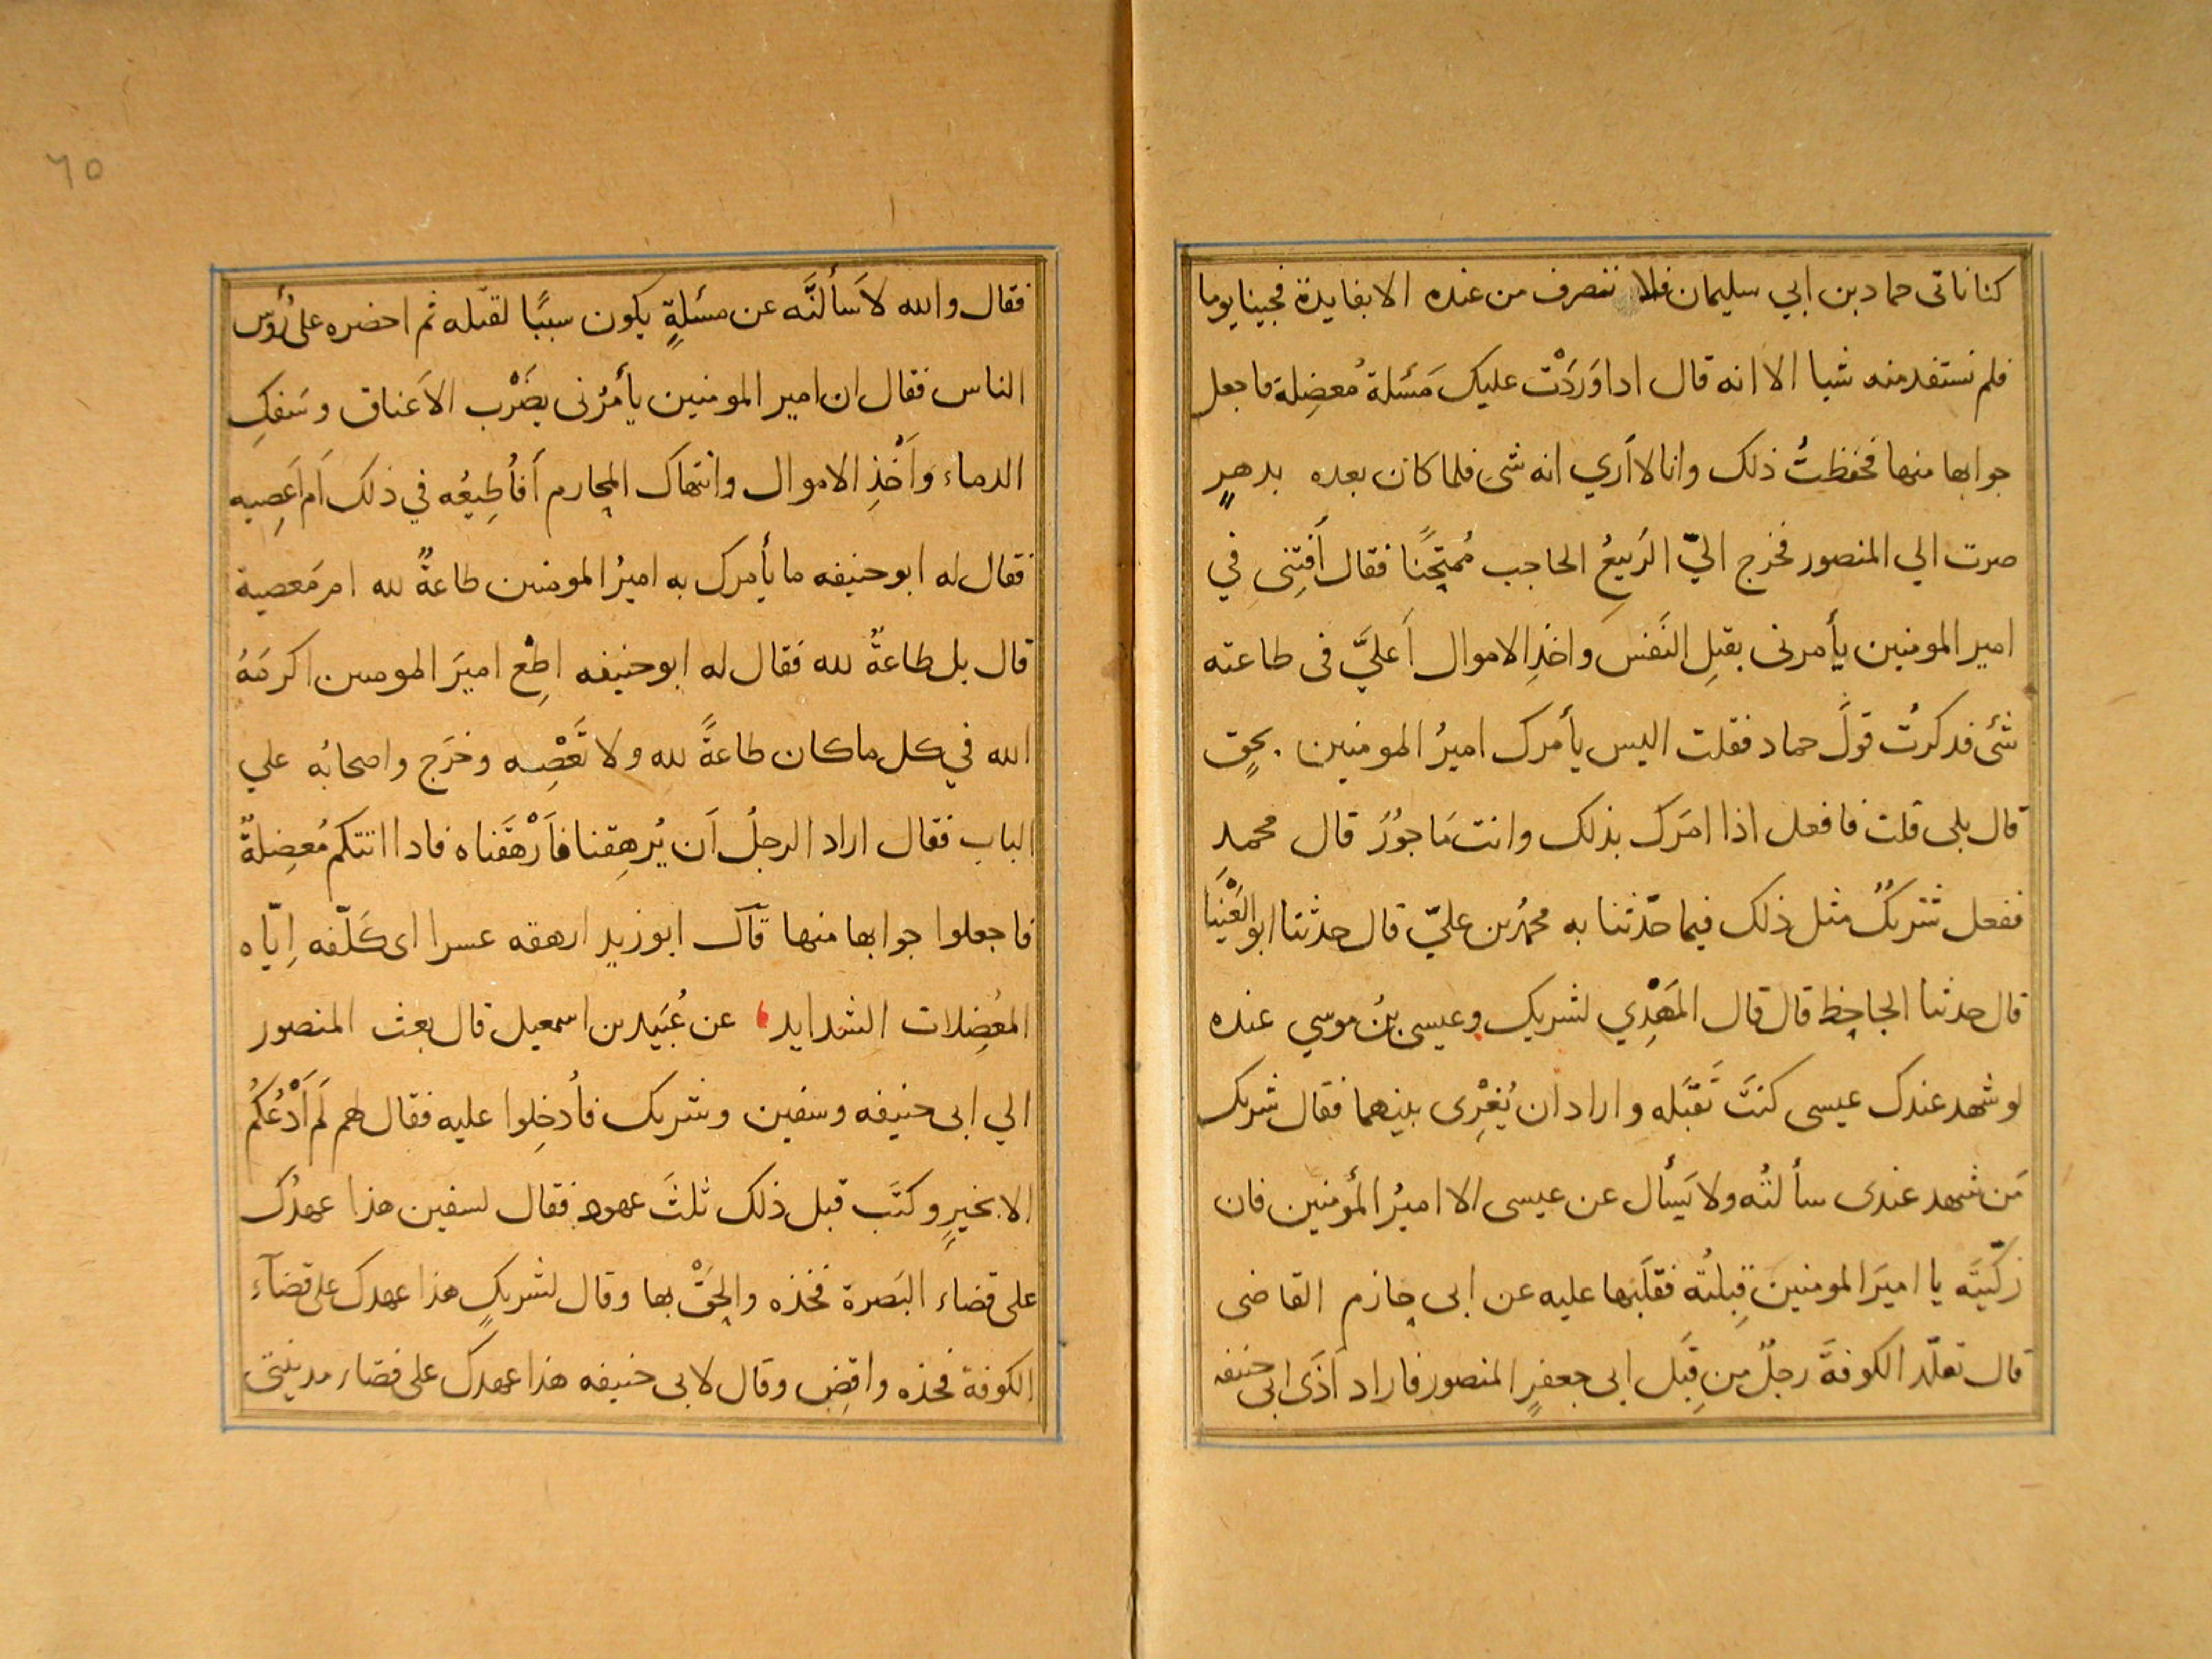 كنا ناتى حماد بن ابي سليمان فلا ننصرف من عنده الا بفايدة فجينا يوما
فلم نستفد منه شيا الا انه قال اذا وَرَدَتْ عليك مَسئلة مُعضِلة فاجعل
جوابها منها فحفظتُ ذلك وانا لا أري انه شئ فلما كان بعده بدهرٍ
صرت الي المنصور فخرج اليّ الرَبيعُ الحاجب مُمتحِنًا فقال أفتِنى في
امير المومنين يأمرنى بقتلِ النَفسَ واخذِ الاموال أَعليَّ فى طاعته
شئ فذكرتُ قولَ حماد فقلت اليس يأمرك اميرُ المومنين بحقٍ
قال بلى قلت فافعل اذا امَرك بذلك وانت مَاجُورُ قال محمد
ففعل شريكٌ مثل ذلك فيما حّدثنا به محمدُ بن عليّ قال حدثنا ابو العَيْنَا
قال حدثنا الجاحِظ قال قال المَهْدِي لشريك وعيسى بنُ موسي عنده
لو شهد عندك عيسى كنتَ تَقبَله واراد ان يُغْرِى بينهما فقال شريك
مَن شهد عندى سألتُه ولا يَسأل عن عيسى الا اميرُ المؤمنين فان
زكّيتَه يا اميرَ المومنينَ قبِلتُه فقلَبَها عليه عن ابى حازم القاضى
قال تقلّد الكوفةَ رجلٌ مِن قِبَل ابى جعفرٍ المنصور فاراد أَذَى ابى حنيفه
٦٥
فقال والله لاَسألنَّه عن مسئلةٍ يكون سببًا لقتله ثم احضره على رُؤس
الناس فقال ان امير المومنين يأمُرنى بضَرْب الاَعناق وسَفكِ
الدماء وأَخْذِ الاموال وانتهاك المحارم أَفأُطِيعُه في ذلك اَم اَعصِيه
فقال له ابو حنيفه ما يأمرك به اميرُ المومنين طاعةٌ لله ام مَعصية
قال بل طاعةٌ لله فقال له ابو حنيفه اطِعْ اميرَ المومنين اكرمَهُ
الله في كل ما كان طاعةً لله ولا تَعْصِه وخرَج واصحابُه علي
الباب فقال اراد الرجلُ اَن يُرهِقنا فاَرْهَقَناه فاذا اتتكم مُعضِلةٌ
فاجعلوا جوابها منها قال ابو زيدٍ ارهقه عسرا اى كَلّفه اِيّاه
المُعضِلات الشدايد عن عُبَيد بن اسمعيل قال بعث المنصور
الي ابى حنيفه وسفين وشريك فأُدخِلوا عليه فقال لهم لَم اَدْعُكُم
الا بخيرٍ وكتَب قبل ذلك ثلثَ عهودٍ فقال لسفين هذا عهدُك
على قضاء البَصرة فخذه والحَقْ بها وقال لشريكٍ هذا عهدك على قضآء
الكوفة فخذه واقضِ وقال لابى حنيفه هذا عهدك على قضاء مدينتى